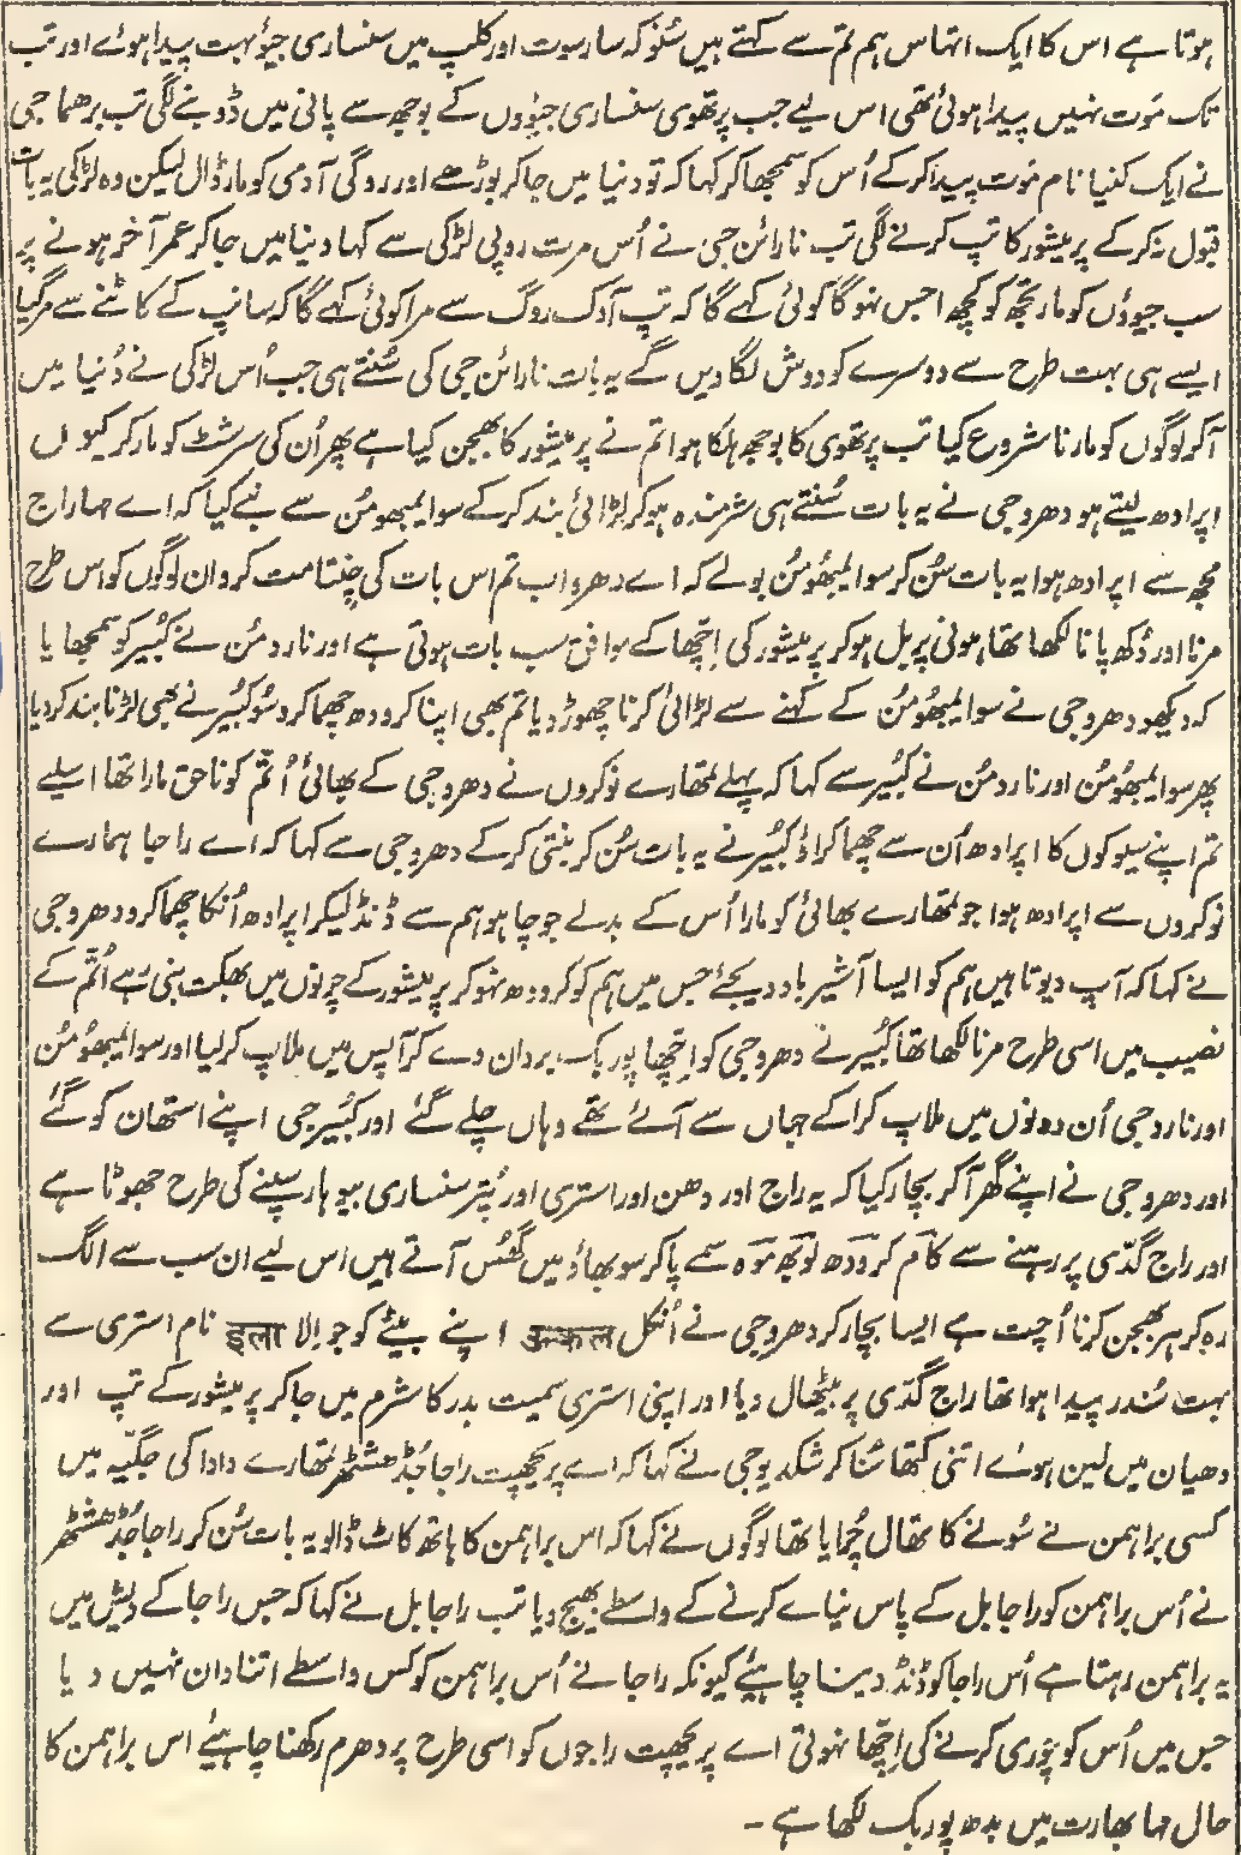 ہوتا ہے اس کا ایک اتہاس ہم تم سے کہتے ہیں سُنو کہ سارسوت اور کلپ میں سنساری جیوُ بہت پیدا ہوئے اور تب
تک مَوت نہیں پیدا ہوئی تھی اس لیے جب پرتھوی سنساری جیوُوں کے بوجھ سے پانی میں ڈوبنے لگی تب برھما جی
نے ایک کنیا نام مَوت پیدا کرکے اُس کو سمجھا کر کہا کہ تو دنیا میں جا کر بوڑھے اور روگی آدمی کو مار ڈال لیکن وہ لڑکی یہ بات
قبول نہ کرکے پرمیشور کا تپ کرنے لگی تب نارائن جی نے اُس مرت روپی لڑکی سے کہا دنیا میں جا کر عمر آخر ہونے پر
سب جیوؤں کو مار تجھ کو کچھ اجس نہو گا کوئی کہے گا کہ تپ آدک روگ سے مرا کوئی کہے گا کہ سانپ کے کاٹنے سے مر گیا
ایسے ہی بہت طرح سے دوسرے کو دوش لگا دیں گے یہ بات نارائن جی کی سُنتے ہی جب اُس لڑکی نے دُنیا میں
آکر لوگوں کو مارنا شروع کیا تب پرتھوی کا بوجھ ہلکا ہوا تم نے پرمیشور کا بھجن کیا ہے پھر اُن کی سرشٹ کو مار کر کیوں
اپرادھ لیتے ہو دھروجی نے یہ بات سُنتے ہی شرمندہ ہو کر لڑائی بند کرکے سوایمبھو مُن سے بنے کیا کہ اے مہاراج
مجھ سے اپرادھ ہوا یہ بات سُن کر سوایمبھُو مُن بولے کہ اے دھرو اب تم اس بات کی چِنتا مت کرو ان لوگوں کو اس طرح
مرنا اور دُکھ پانا لکھا تھا ہونی پربل ہو کر پرمیشور کی اِچّھا کے موافق سب بات ہوتی ہے اور نارد مُن نے کُبیر کو سمجھایا
کہ دیکھو دھروجی نے سوایمبھُو مُن کے کہنے سے لڑائی کرنا چھوڑ دیا تم بھی اپنا کرودھ چھما کرو سُو کُبیر نے بھی لڑنا بند کر دیا
پھر سوایمبھُو مُن اور نارد مُن نے کُبیر سے کہا کہ پہلے تمھارے نوکروں نے دھروجی کے بھائی اُتّم کو ناحق مارا تھا اسلیے
تم اپنے سیوکوں کا اپرادھ اُن سے چھما کراؤ کُبیر نے یہ بات سُن کر بنتی کرکے دھروجی سے کہا کہ اے راجا ہمارے
نوکروں سے اپرادھ ہوا جو تمھارے بھائی کو مارا اُس کے بدلے جو چاہو ہم سے ڈنڈ لیکر اپرادھ اُنکا چھما کرو دھروجی
نے کہا کہ آپ دیوتا ہیں ہم کو ایسا آشیرباد دیجئے جس میں ہم کو کرودھ نہو کر پرمیشور کے چرنوں میں بھکت بنی رہے اُتّم کے
نصیب میں اسی طرح مرنا لکھا تھا کُبیر نے دھروجی کو اِچّھا پوربک بردان دے کر آپس میں ملاپ کر لیا اور سوایمبھُو مُن
اور نارد جی اُن دونوں میں ملاپ کرا کے جہاں سے آئے تھے وہاں چلے گئے اور کُبیر جی اپنے استھان کو گئے
اور دھروجی نے اپنے گھر آکر بچار کیا کہ یہ راج اور دھن اور استری اور پُتر سنساری بیوہار سپنے کی طرح جھوٹا ہے
اور راج گدّی پر رہنے سے کام کرودھ لوبھ موہ سمے پا کر سوبھاؤ میں گھُس آتے ہیں اس لیے ان سب سے الگ
رہ کر ہر بھجن کرنا اُچت ہے ایسا بچار کر دھروجی نے اُتکل उत्कल اپنے بیٹے کو جو اِلا इला نام استری سے
بہت سُندر پیدا ہوا تھا راج گدّی پر بیٹھال دیا اور اپنی استری سمیت بدر کاشرم میں جا کر پرمیشور کے تپ اور
دھیان میں لین ہوئے اتنی کتھا سُنا کر شکدیوجی نے کہا کہ اے پریچھت راجا جُدھشٹھر تمھارے دادا کی جگیّہ میں
کسی براہمن نے سونے کا تھال چُرایا تھا لوگوں نے کہا کہ اس براہمن کا ہاتھ کاٹ ڈالو یہ بات سُن کر راجا جُدھشٹھر
نے اُس براہمن کو راجا بل کے پاس نیاے کرنے کے واسطے بھیج دیا تب راجا بل نے کہا کہ جس راجا کے دیش میں
یہ براہمن رہتا ہے اُس راجا کو ڈنڈ دینا چاہیئے کیونکہ راجا نے اُس براہمن کو کس واسطے اتنا دان نہیں دیا
جس میں اُس کو چوری کرنے کی اِچّھا نہوتی اے پریچھت راجوں کو اسی طرح پر دھرم رکھنا چاہیئے اس براہمن کا
حال مہا بھارت میں بدھ پوربک لکھا ہے ۔